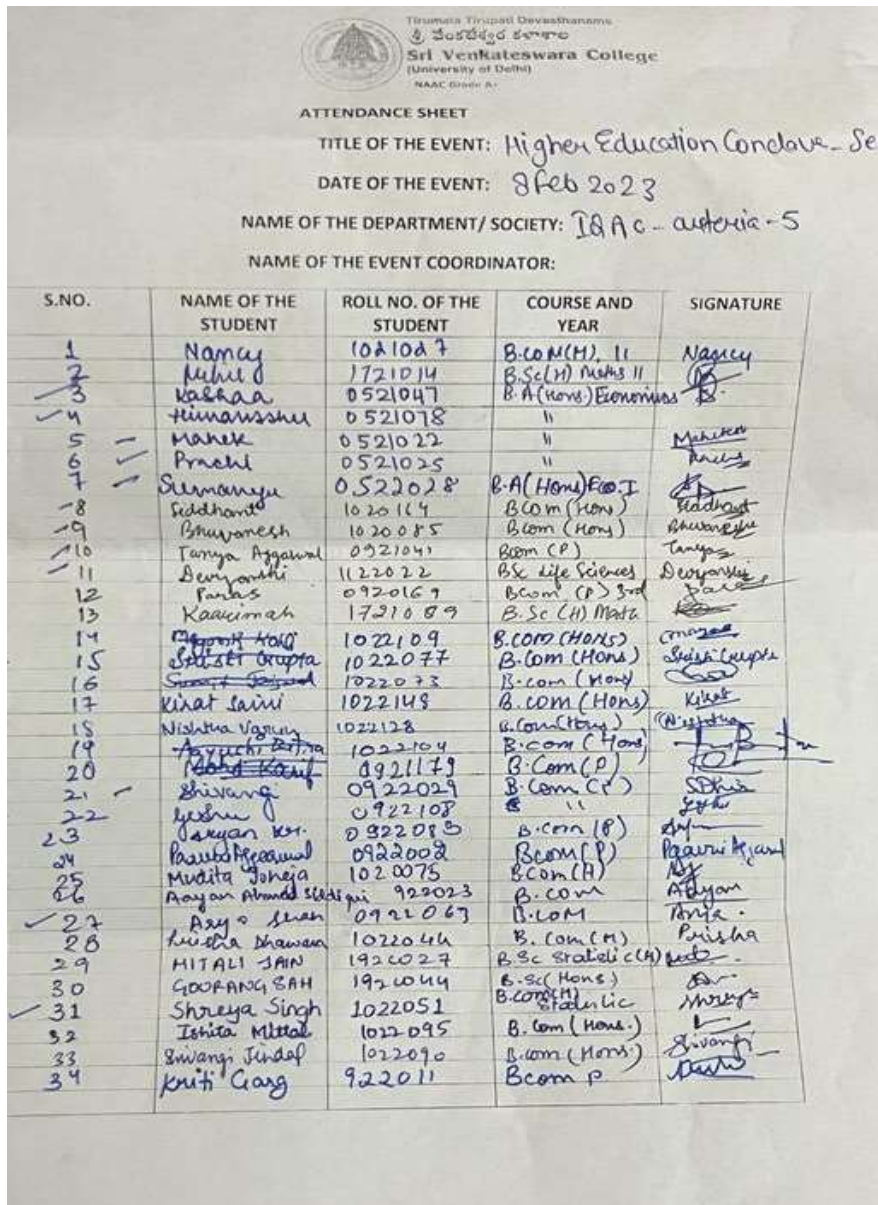 Tirumala Tirupati Devasthanams
శ్రీ వేంకటేశ్వర కళాశాల
Sri Venkateswara College
(University of Delhi)
NAAC Grade A+
ATTENDANCE SHEET
TITLE OF THE EVENT: Higher Education Conclave - Se
DATE OF THE EVENT: 8 Feb 2023
NAME OF THE DEPARTMENT/ SOCIETY: IQAC - criteria - 5
NAME OF THE EVENT COORDINATOR:
S.NO. NAME OF THE STUDENT ROLL NO. OF THE STUDENT COURSE AND YEAR SIGNATURE
1 Nancy 1021027 B.COM(H), II Nancy
2 1721014 B.Sc(H) Maths II
3 Kashaa 0521047 B.A(Hons.) Economics
4 0521078 "
5 Mahek 0521022 "
6 Prachi 0521025 "
7 Sumanyu 0522028 B.A(Hons) Eco. I
8 Siddhant 1020164 BCom (Hons) Siddhant
9 Bhuvanesh 1020085 Bcom (Hons) Bhuvanesh
10 Tanya Aggarwal 0921041 Bcom (P) Tanya
11 Devyanshi 1122022 BSc Life Sciences Devyanshi
12 Paras 0920169 Bcom (P) 3rd
13 1721009 B.Sc (H) Math
14 1022109 B.COM (HONS)
15 Srishti Grupta 1022077 B.Com (Hons) Srishti Grupta
16 1022073 B.com (Hons)
17 Kirat Saini 1022148 B.com (Hons) Kirat
18 Nishtha 1022128 B.Com(Hons) Nishtha
19 1022104 B.com (Hons)
20 0921179 B.Com(P)
21 Shivangi 0922029 B.Com (P)
22 Yeshu 0922108 "
23 Aryan Kr. 0922083 B.com (P)
24 0922002 Bcom(P)
25 Mudita Joneja 1020075 BCom(H)
26 Aayan Ahmad Siddiqui 922023 B.COM Aayan
27 Arya 0922063 B.COM Arya.
28 1022044 B. Com(H) Prisha
29 MITALI JAIN 1920027 B.Sc Statistic(H)
30 GOURANG SAH 1920044 B.Sc(Hons) Statistic
31 Shreya Singh 1022051 B.COM(H) Shreya
32 Ishita Mittal 1022095 B.Com (Hons.)
33 Shivangi Jindal 1022090 B.com (Hons.) Shivangi
34 Kriti Garg 922011 Bcom P